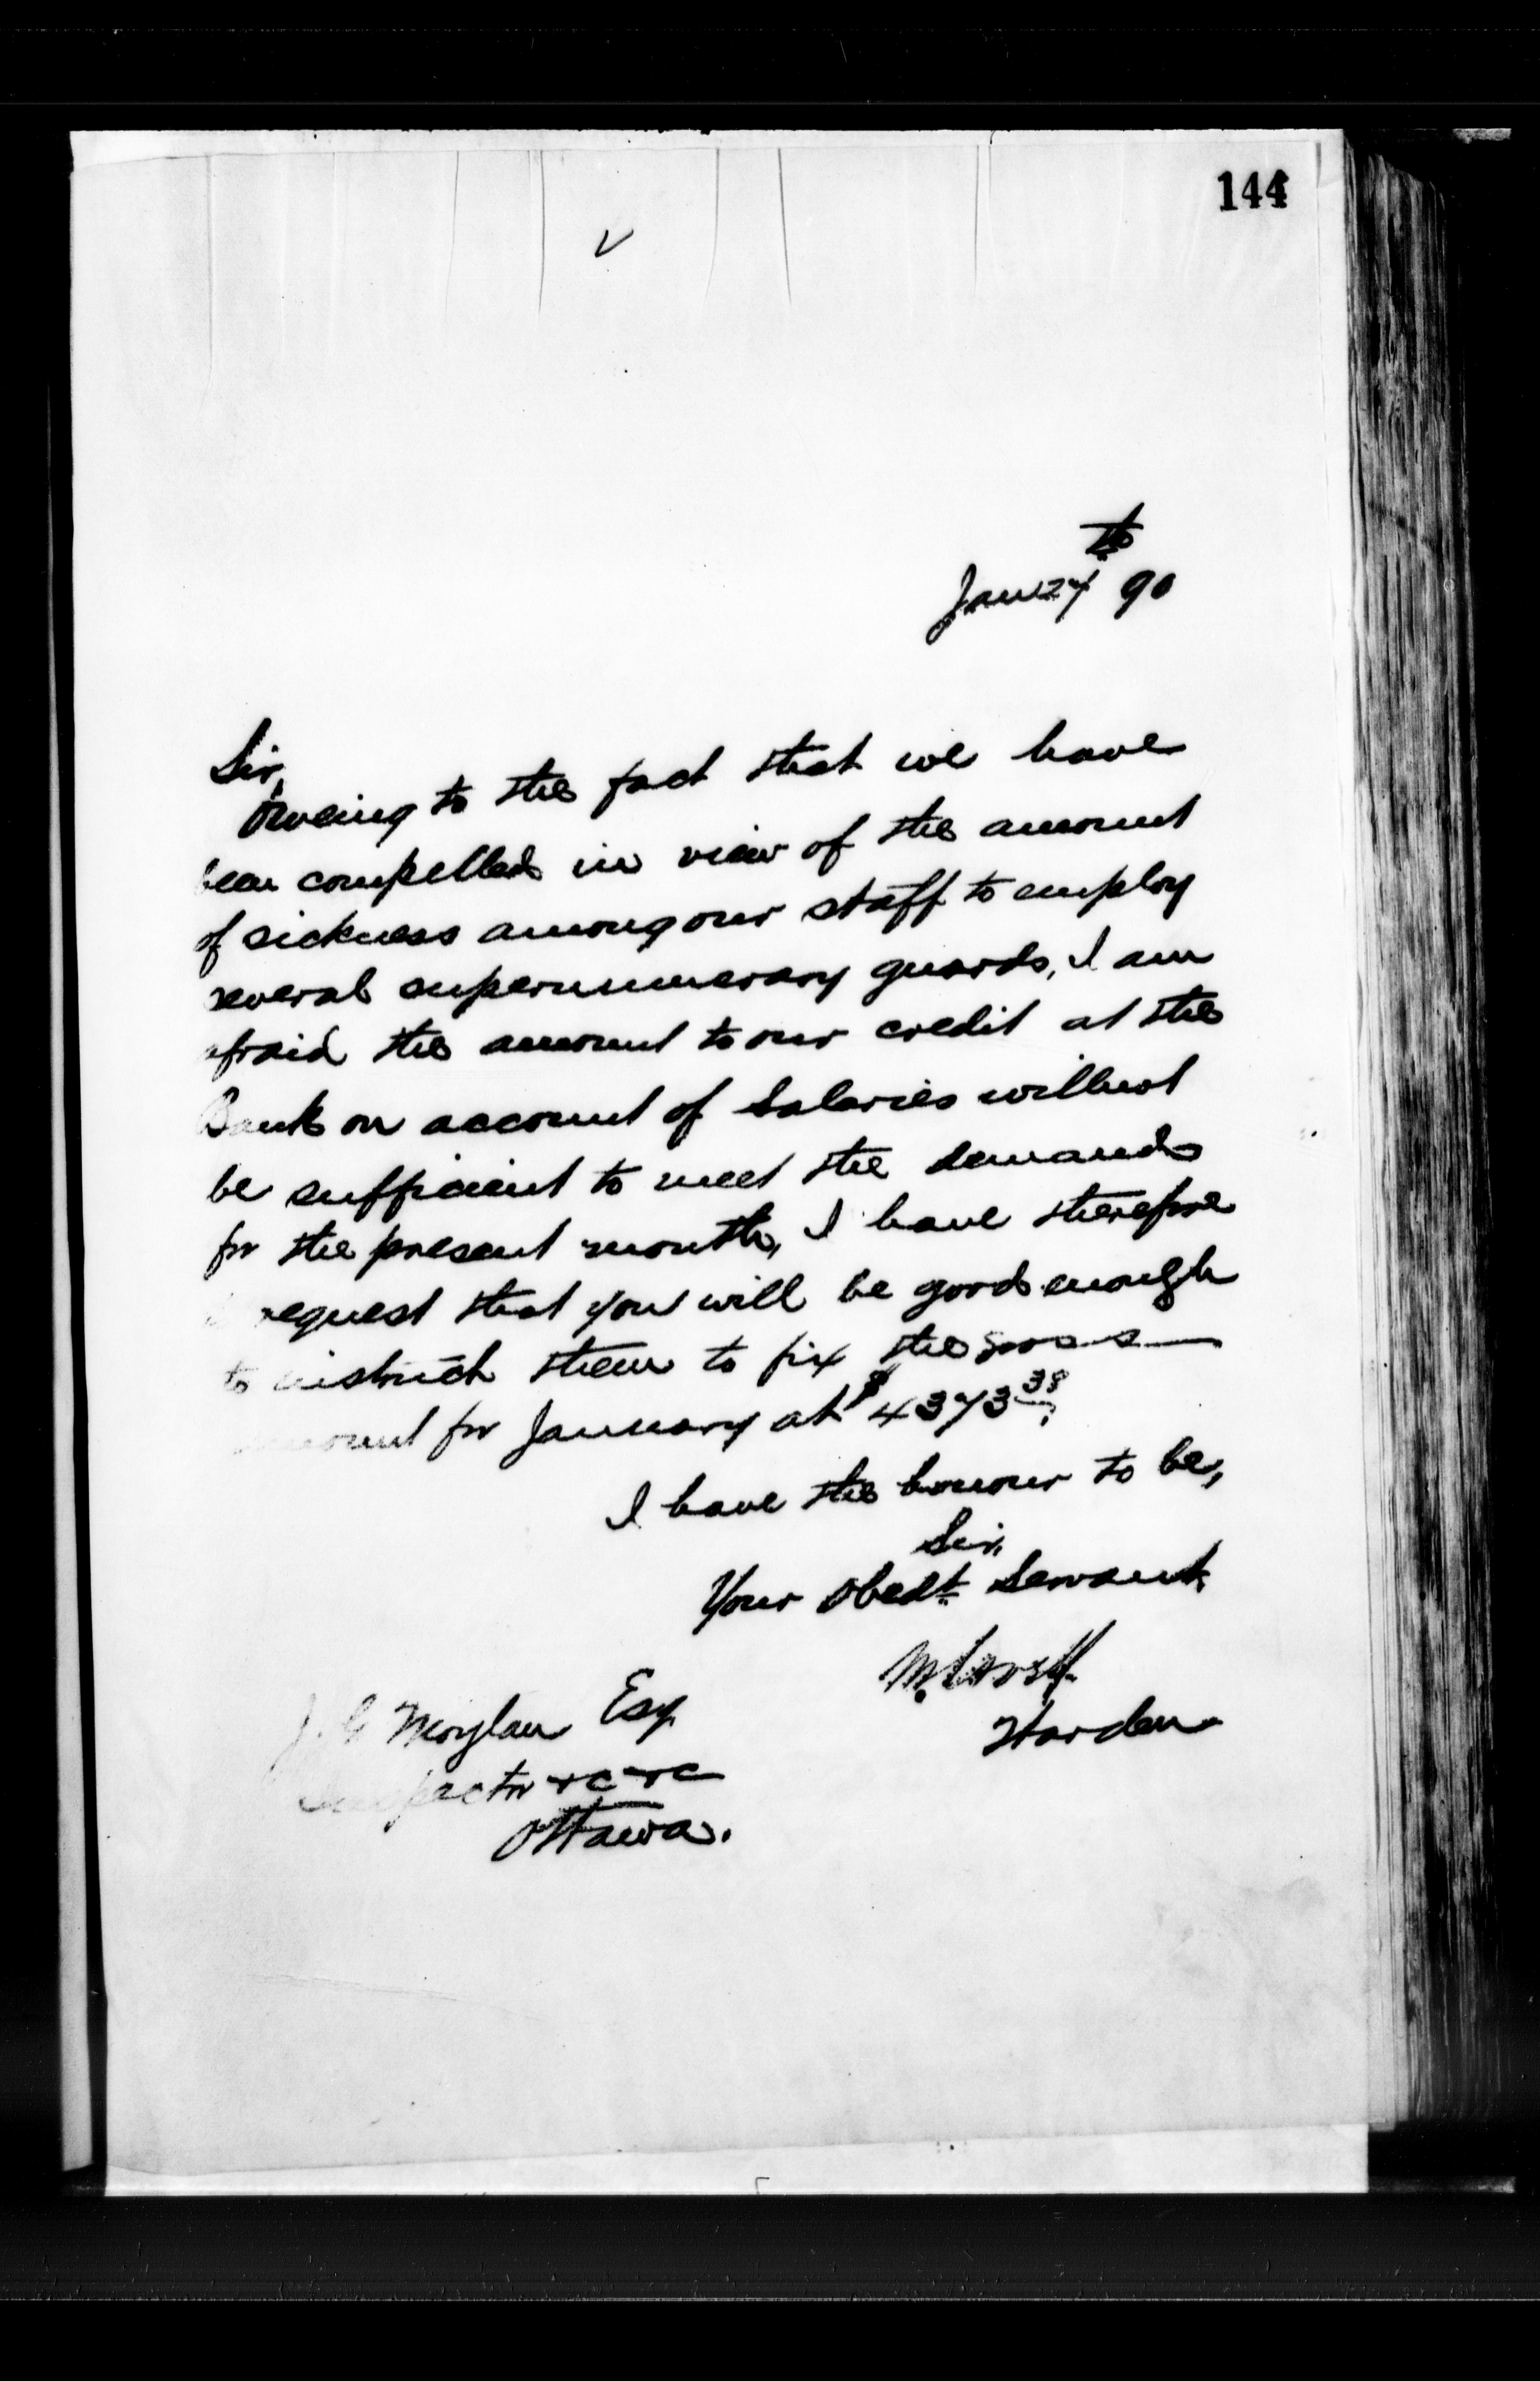 144
th
Jany 24 90
Sir,
Owing to the fact that we have
been compelled in view of the amount
of sickness among our staff to employ
several supernumerary guards, I am
afraid the amount to our credit at the
Bank on account of Salaries will not
be sufficient to meet the demands
for the present month, I have therefore
request that you will be good enough
to instruct them to fix the gross
amount for January at $4373 38
I have the honour to be,
Sir,
Your Obedt Servant,
Warden
J. G. Moylan Esq
Inspector &c &c
Ottawa.